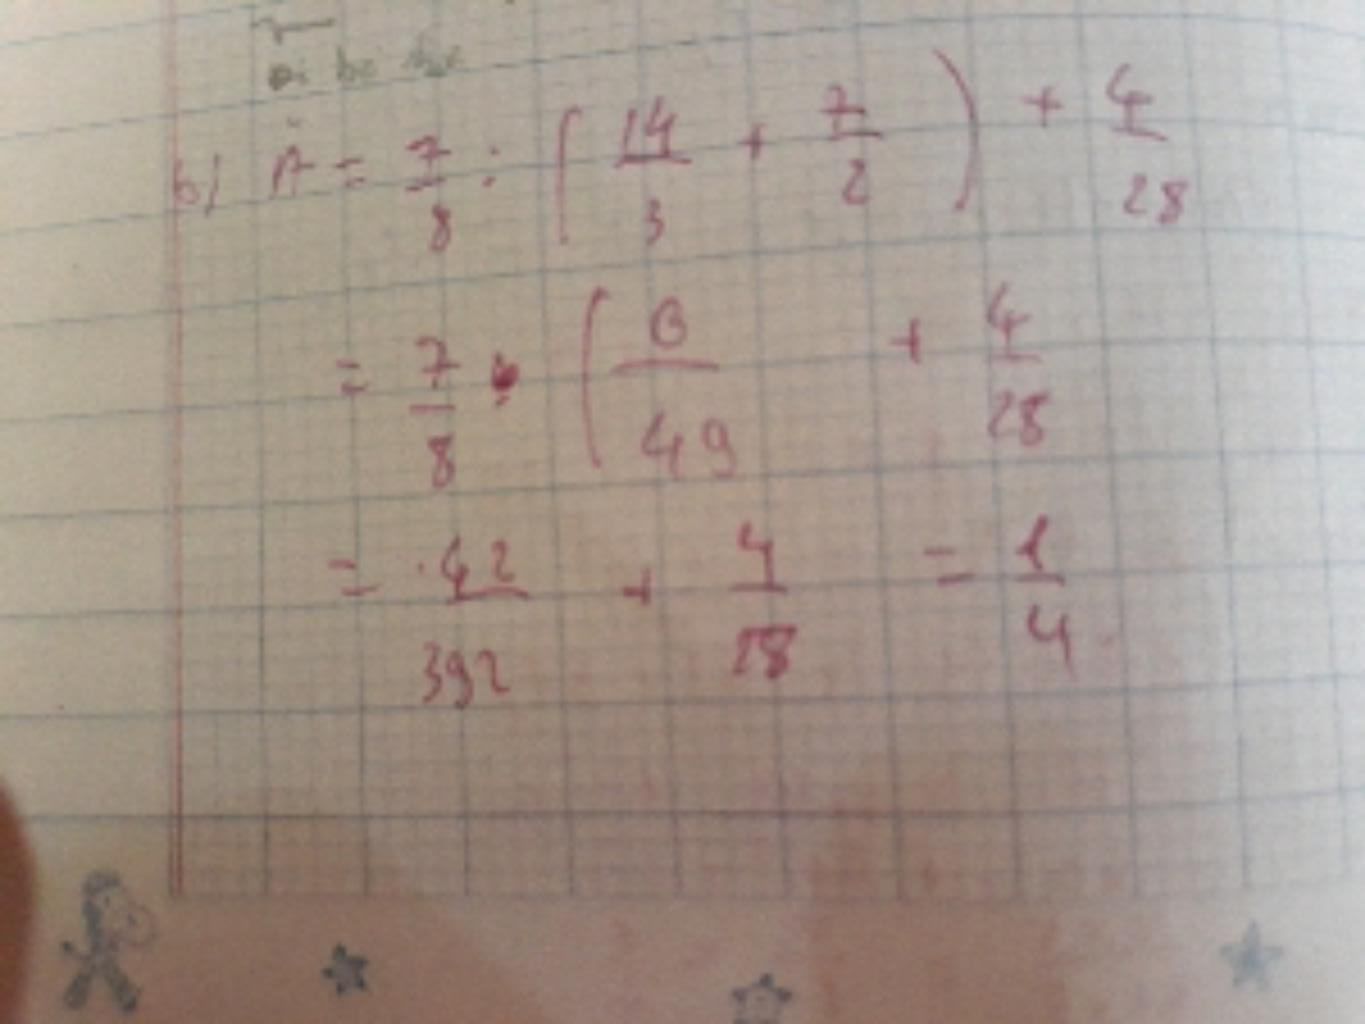 b) A = 7/8 : ( 14/3 + 7/2 ) + 4/28
= 7/8 . ( 6/49 + 4/28
= 42/392 + 4/28 = 1/4